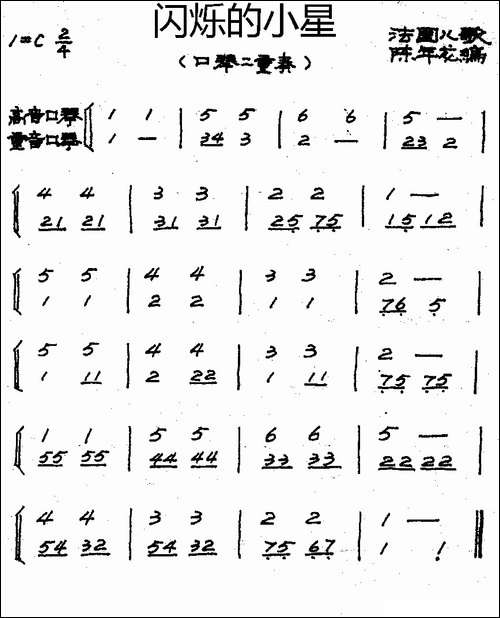 闪烁的小星
1=C 2/4
(口琴二重奏)
法国儿歌
陈年芳编
高音口琴 1 1 | 5 5 | 6 6 | 5 — |
重音口琴 1 — | 34 3 | 2 — | 23 2 |
4 4 | 3 3 | 2 2 | 1 — |
21 21 | 31 31 | 25 75 | 15 12 |
5 5 | 4 4 | 3 3 | 2 — |
1 1 | 2 2 | 1 1 | 76 5 |
5 5 | 4 4 | 3 3 | 2 — |
1 11 | 2 22 | 1 11 | 75 75 |
1 1 | 5 5 | 6 6 | 5 — |
55 55 | 44 44 | 33 33 | 22 22 |
4 4 | 3 3 | 2 2 | 1 — ‖
54 32 | 54 32 | 75 67 | 1 1 ‖